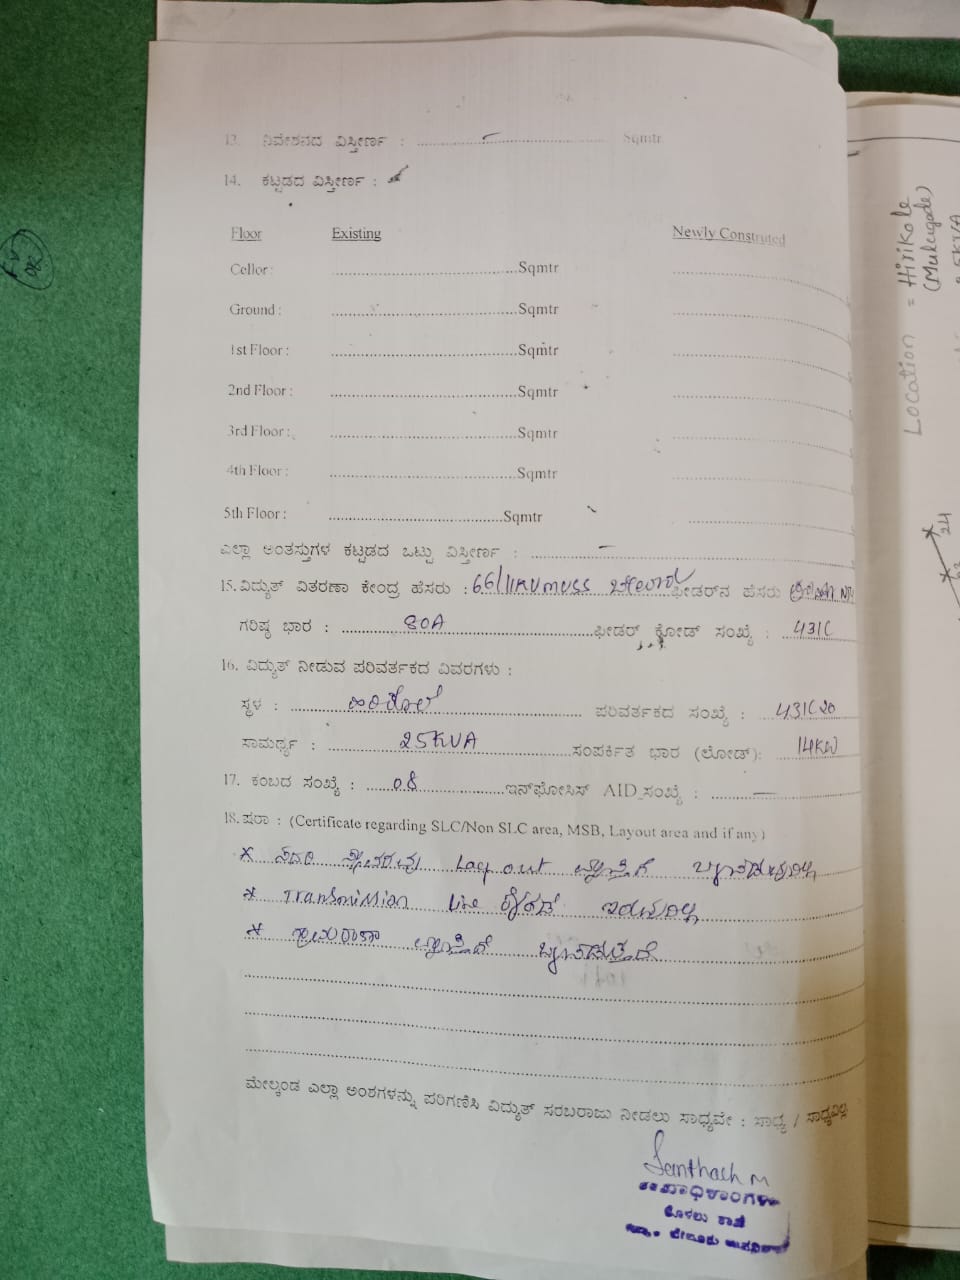 13. ನಿವೇಶನದ ವಿಸ್ತೀರ್ಣ : – Sqmtr
14. ಕಟ್ಟಡದ ವಿಸ್ತೀರ್ಣ :
Floor Existing Newly Constructed
Cellor : Sqmtr
Ground : Sqmtr
1st Floor : Sqmtr
2nd Floor : Sqmtr
3rd Floor : Sqmtr
4th Floor : Sqmtr
5th Floor : Sqmtr
ಎಲ್ಲಾ ಅಂತಸ್ತುಗಳ ಕಟ್ಟಡದ ಒಟ್ಟು ವಿಸ್ತೀರ್ಣ : –
15. ವಿದ್ಯುತ್ ವಿತರಣಾ ಕೇಂದ್ರ ಹೆಸರು : 66/11KV MUSS ಫೀಡರ್‌ನ ಹೆಸರು
ಗರಿಷ್ಠ ಭಾರ : 80A ಫೀಡರ್ ಕೋಡ್ ಸಂಖ್ಯೆ : 431C
16. ವಿದ್ಯುತ್ ನೀಡುವ ಪರಿವರ್ತಕದ ವಿವರಗಳು :
ಸ್ಥಳ : ಹಿರಿಕೋಲೆ ಪರಿವರ್ತಕದ ಸಂಖ್ಯೆ : 431C20
ಸಾಮರ್ಥ್ಯ : 25KVA ಸಂಪರ್ಕಿತ ಭಾರ (ಲೋಡ್): 14KW
17. ಕಂಬದ ಸಂಖ್ಯೆ : 08 ಇನ್‌ಫೋಸಿಸ್ AID ಸಂಖ್ಯೆ : –
18. ಷರಾ : (Certificate regarding SLC/Non SLC area, MSB, Layout area and if any)
* ಸದರಿ ಸ್ಥಾವರವು Lay out ವ್ಯಾಪ್ತಿಗೆ
* Transmission line ಕೆಳಗಡೆ ಇರುವುದಿಲ್ಲ
* ವ್ಯಾಪ್ತಿಗೆ
ಮೇಲ್ಕಂಡ ಎಲ್ಲಾ ಅಂಶಗಳನ್ನು ಪರಿಗಣಿಸಿ ವಿದ್ಯುತ್ ಸರಬರಾಜು ನೀಡಲು ಸಾಧ್ಯವೇ : ಸಾಧ್ಯ / ಸಾಧ್ಯವಿಲ್ಲ
Santhosh M
ಶಾಖೆ
Location = Hirikole
(Mulugode)
24